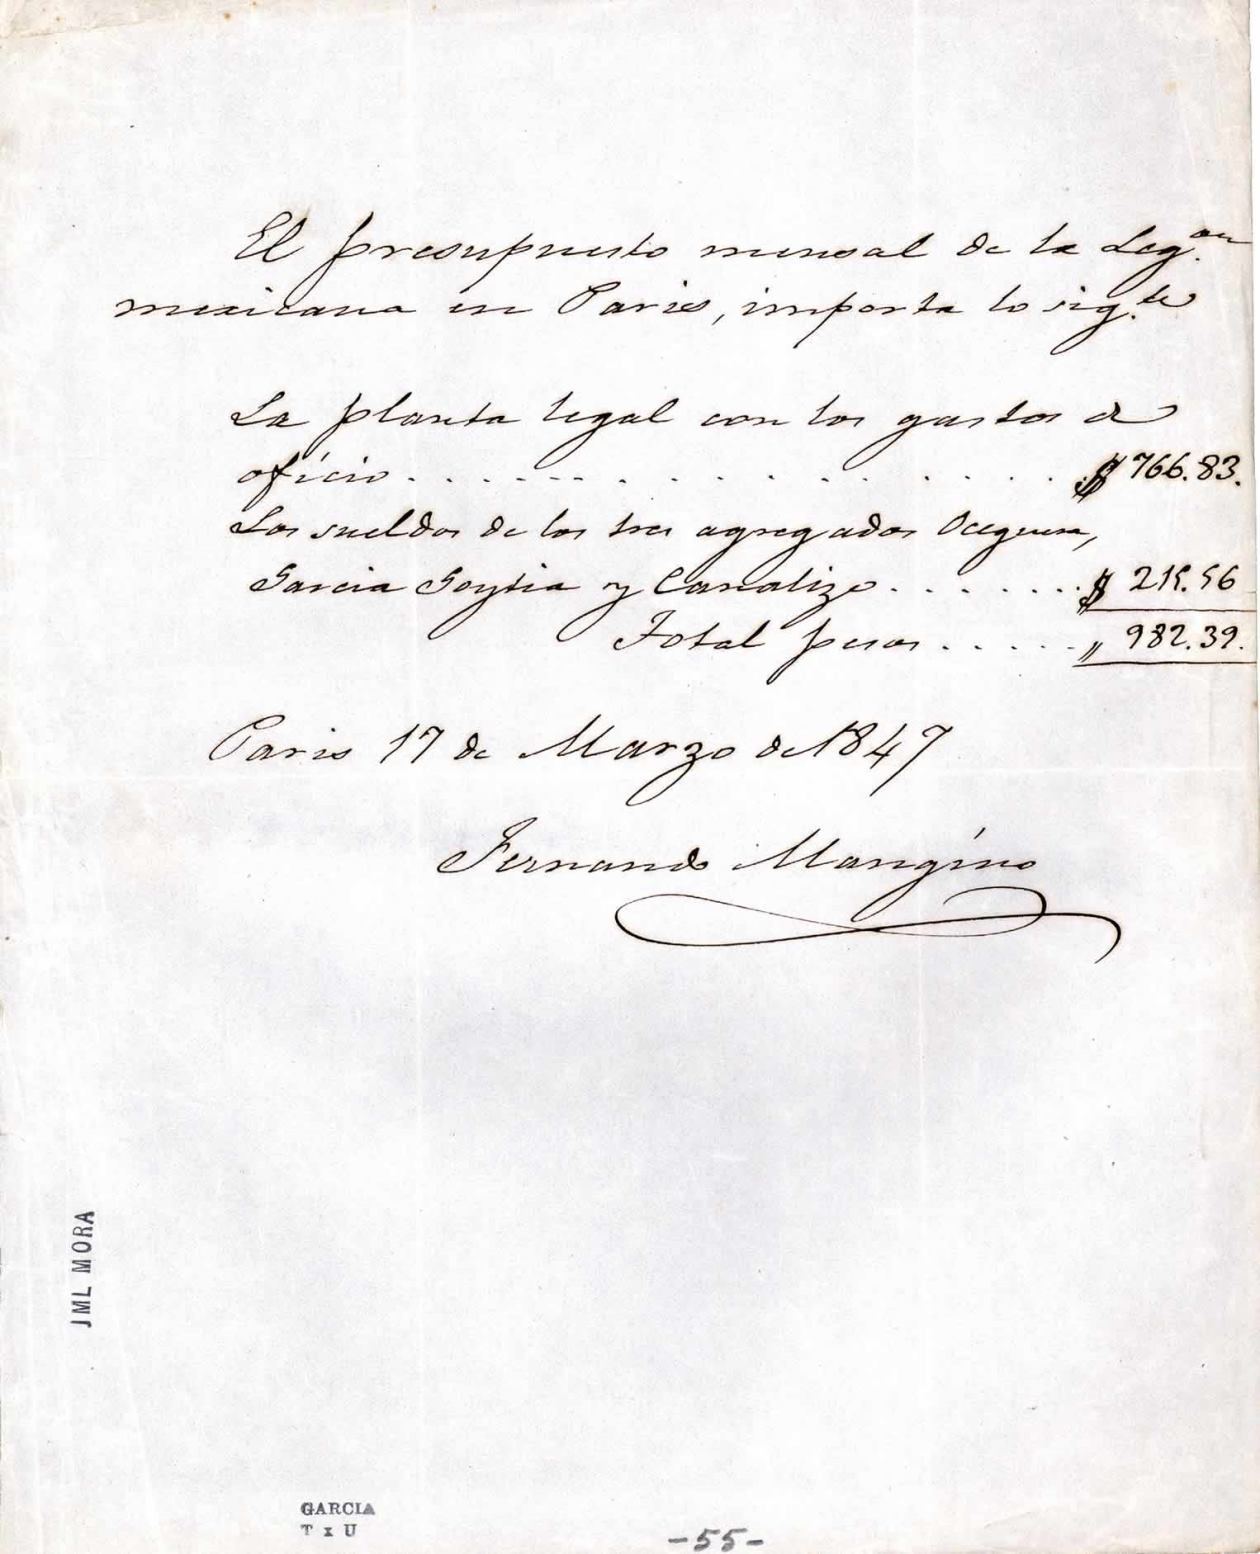 El presupuesto mensal de la Leg.on
mexicana en Paris, importa lo sig.te
La planta legal con los gastos de
oficio . . . . . . . . . . . . . $ 766.83.
Los sueldos de los tres agregados Oceguera,
Garcia Goytia y Canalizo . . . . . . . $ 215.56
Total pesos . . . . . „ 982.39.
Paris 17 de Marzo de 1847
Fernando Mangino
JML MORA
GARCIA
T x U
-55-